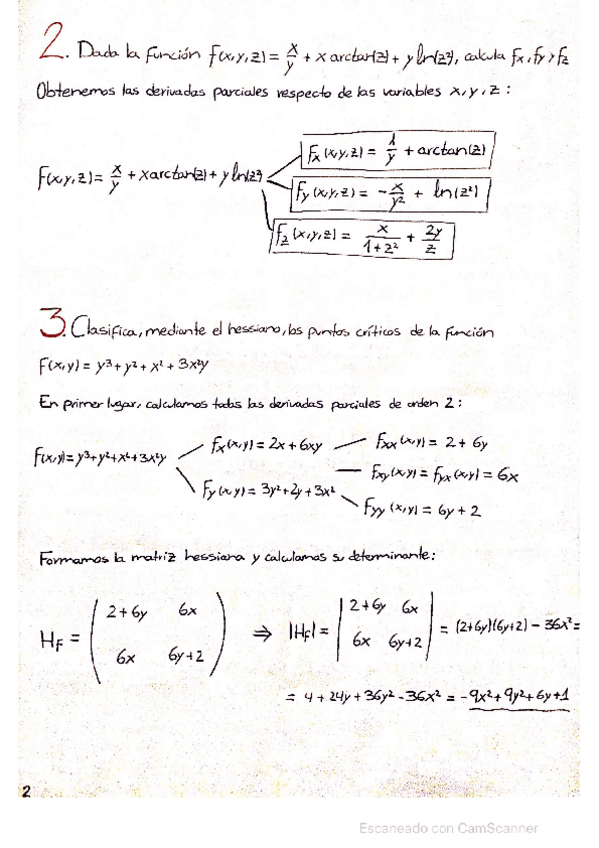 2. Dada la función f(x,y,z) = x/y + x arctan(z) + y ln(z²), calcula fx, fy y fz
Obtenemos las derivadas parciales respecto de las variables x, y, z :
fx (x,y,z) = 1/y + arctan(z)
f(x,y,z) = x/y + x arctan(z) + y ln(z²)
fy (x,y,z) = -x/y² + ln(z²)
fz (x,y,z) = x/1+z² + 2y/z
3. Clasifica, mediante el hessiano, los puntos críticos de la función
f(x,y) = y³ + y² + x² + 3x²y
En primer lugar, calculamos todas las derivadas parciales de orden 2 :
fx (x,y) = 2x + 6xy
fxx (x,y) = 2 + 6y
f(x,y) = y³+y²+x²+3x²y
fxy (x,y) = fyx (x,y) = 6x
fy (x,y) = 3y²+2y+3x²
fyy (x,y) = 6y + 2
Formamos la matriz hessiana y calculamos su determinante:
Hf = ( 2+6y 6x ) ⇒ |Hf| = | 2+6y 6x | = (2+6y)(6y+2) - 36x² =
( 6x 6y+2 ) | 6x 6y+2 |
= 4 + 24y + 36y² - 36x² = -9x² + 9y² + 6y + 1
2
Escaneado con CamScanner